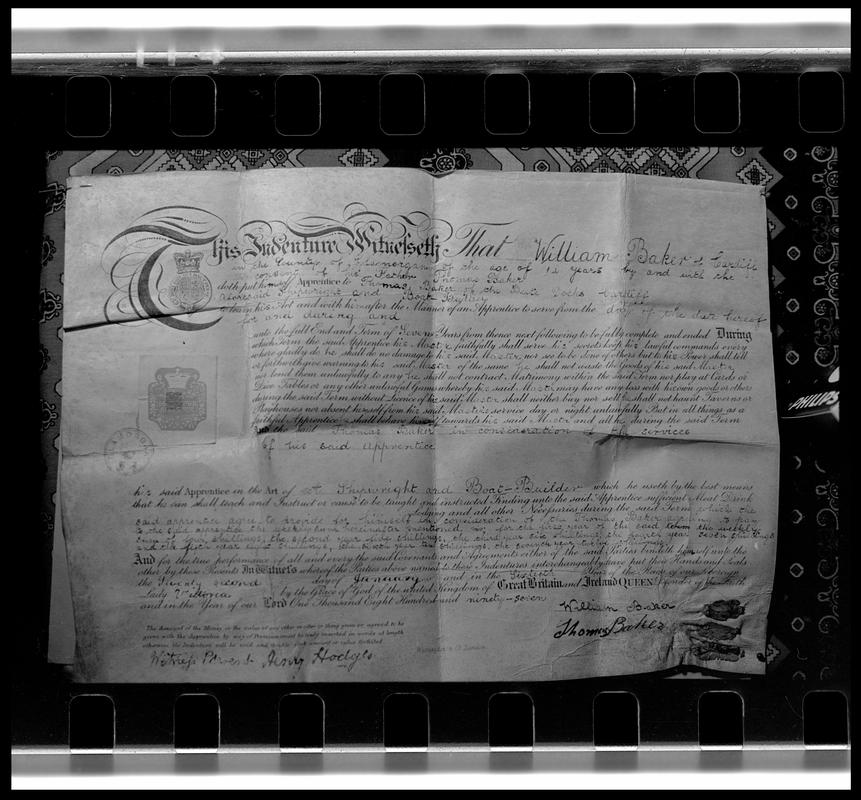 This Indenture Witnesseth That William Baker of Cardiff
in the County of Glamorgan of the age of 14 years by and with the
consent of his Father Thomas Baker
doth put himself Apprentice to Thomas Baker of the Bute Docks Cardiff
aforesaid Shipwright and Boat Builder
to learn his Art and with him after the Manner of an Apprentice to serve from the day of the date hereof
for and during and
unto the full End and Term of Seven Years from thence next following to be fully complete and ended During
which Term the said Apprentice his Master faithfully shall serve his secrets keep his lawful commands every
where gladly do he shall do no damage to his said Master nor see to be done of others but to his Power shall tell
or forthwith give warning to his said Master of the same he shall not waste the Goods of his said Master
nor lend them unlawfully to any he shall not contract Matrimony within the said Term nor play at Cards or
Dice Tables or any other unlawful Games whereby his said Master may have any loss with his own goods or others
during the said Term without Licence of his said Master shall neither buy nor sell he shall not haunt Taverns or
Playhouses nor absent himself from his said Master's service day or night unlawfully But in all things as a
faithful Apprentice he shall behave himself towards his said Master and all his during the said Term
And the said Thomas Baker in consideration of the services
of his said Apprentice
his said Apprentice in the Art of a Shipwright and Boat-Builder which he useth by the best means
that he can shall teach and Instruct or cause to be taught and instructed Finding unto the said Apprentice sufficient Meat Drink
Lodging and all other Necessaries during the said Term which the
said apprentice agree to provide for himself in consideration of the Thomas Baker to pay
to the said apprentice the weekly sums hereinafter mentioned for the first year of the said term the weekly
sum of four shillings, the second year five shillings, the third year six shillings, the fourth year seven shillings
and the fifth year eight shillings, the sixth year ten shillings, the seventh year shillings
And for the true performance of all and every the said Covenants and Agreements either of the said Parties bindeth himself unto the
other by these Presents In Witness whereof the Parties above named to these Indentures interchangeably have put their Hands and Seals
the Twenty second day of January and in the Sixtieth Year of the Reign of our Sovereign
Lady Victoria by the Grace of God of the united Kingdom of Great Britain and Ireland QUEEN Defender of the Faith
and in the Year of our Lord One Thousand Eight Hundred and ninety-seven
William Baker
Thomas Baker
The Amount of the Money or the value of any other matter or thing given or agreed to be
given with the Apprentice by way of Premium must be truly inserted in words at length
otherwise the Indenture will be void and double such amount or value forfeited
Witness Present Henry Hodges
PHILIPS